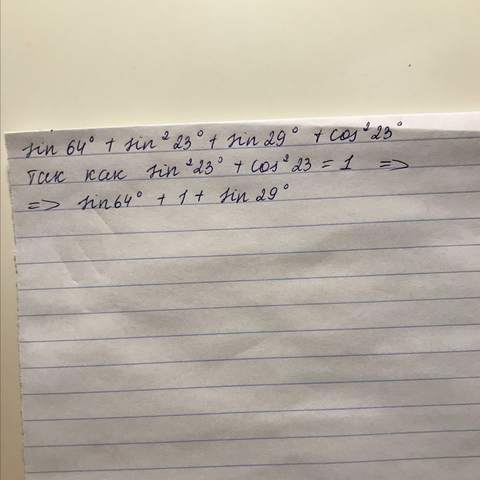 sin 64° + sin²23° + sin 29° + cos²23°
так как sin²23° + cos²23 = 1 =>
=> sin64° + 1 + sin 29°